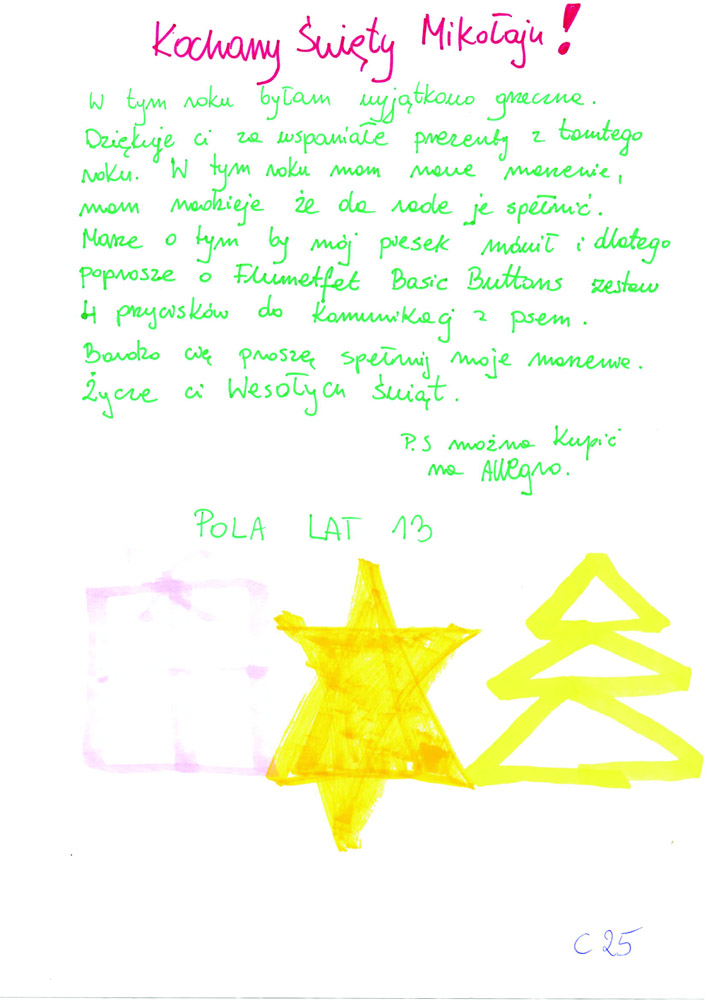 Kochany Święty Mikołaju!
W tym roku byłam wyjątkowo grzeczna.
Dziękuje ci za wspaniałe prezenty z tamtego
roku. W tym roku mam nowe marzenie,
mam nadzieje że da rade je spełnić.
Marze o tym by mój piesek mówił i dlatego
poprosze o Flumetfet Basic Buttons zestaw
4 przycisków do komunikacj z psem.
Bardzo cię proszę spełnij moje marzenie.
Życze ci Wesołych Świąt.
P.S można kupić
na Allegro.
POLA LAT 13
C 25